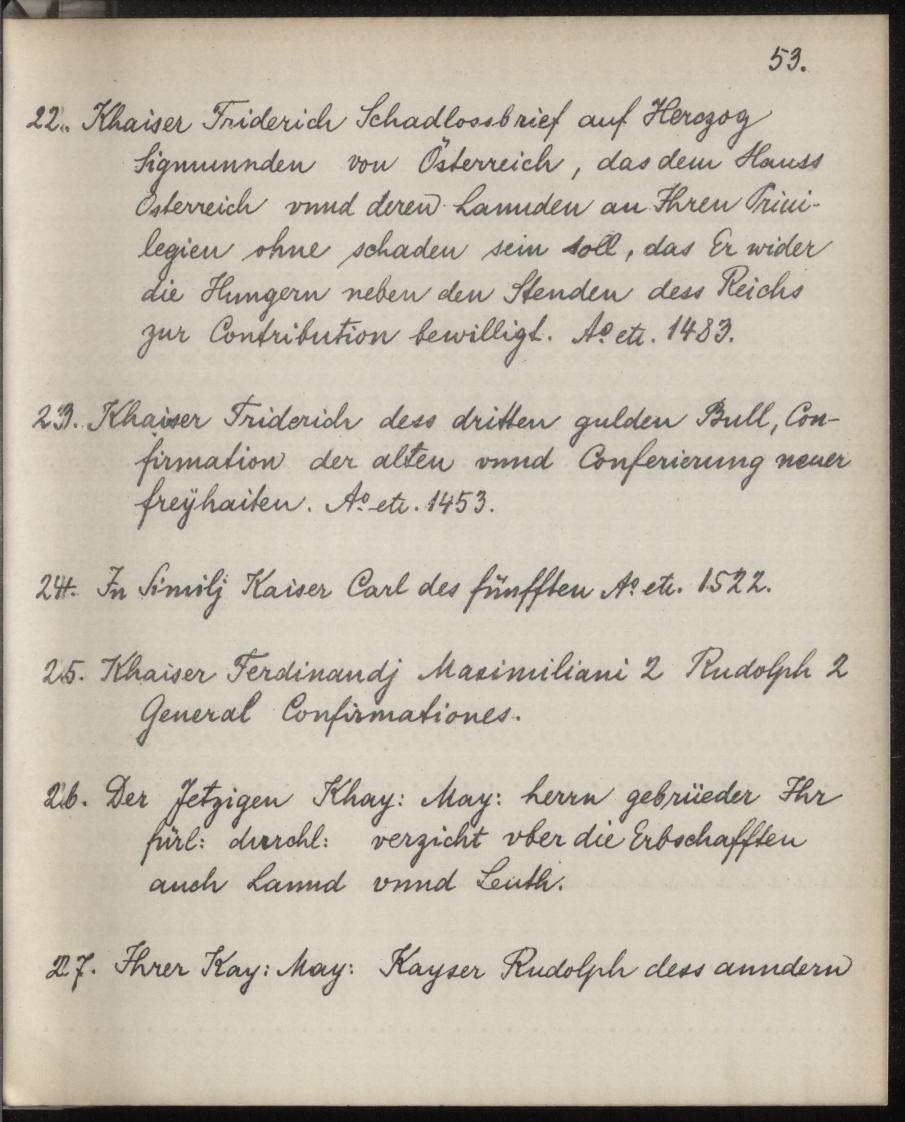 53.
22. Khaiser Friderich Schadlossbrief auf Herczog
Sigmunnden von Österreich, das dem Hauss
Österreich vnnd deren Lannden an Ihren Priui-
legien ohne schaden sein soll, das Er wider
die Hungern neben den Stenden dess Reichs
zur Contribution bewilligt. Ao. etc. 1483.
23. Khaiser Friderich dess dritten gulden Bull, Con-
firmation der alten vnnd Conferierung neuer
freÿhaiten. Ao. etc. 1453.
24. In Similj Kaiser Carl des fünfften Ao. etc. 1522.
25. Khaiser Ferdinandj Maximiliani 2 Rudolph 2
General Confirmationes.
26. Der Jetzigen Khay: May: herrn gebrüeder Ihr
fürl: durchl: verzicht vber die Erbschafften
auch Lannd vnnd Leuth.
27. Ihrer Kay: May: Kayser Rudolph dess anndern